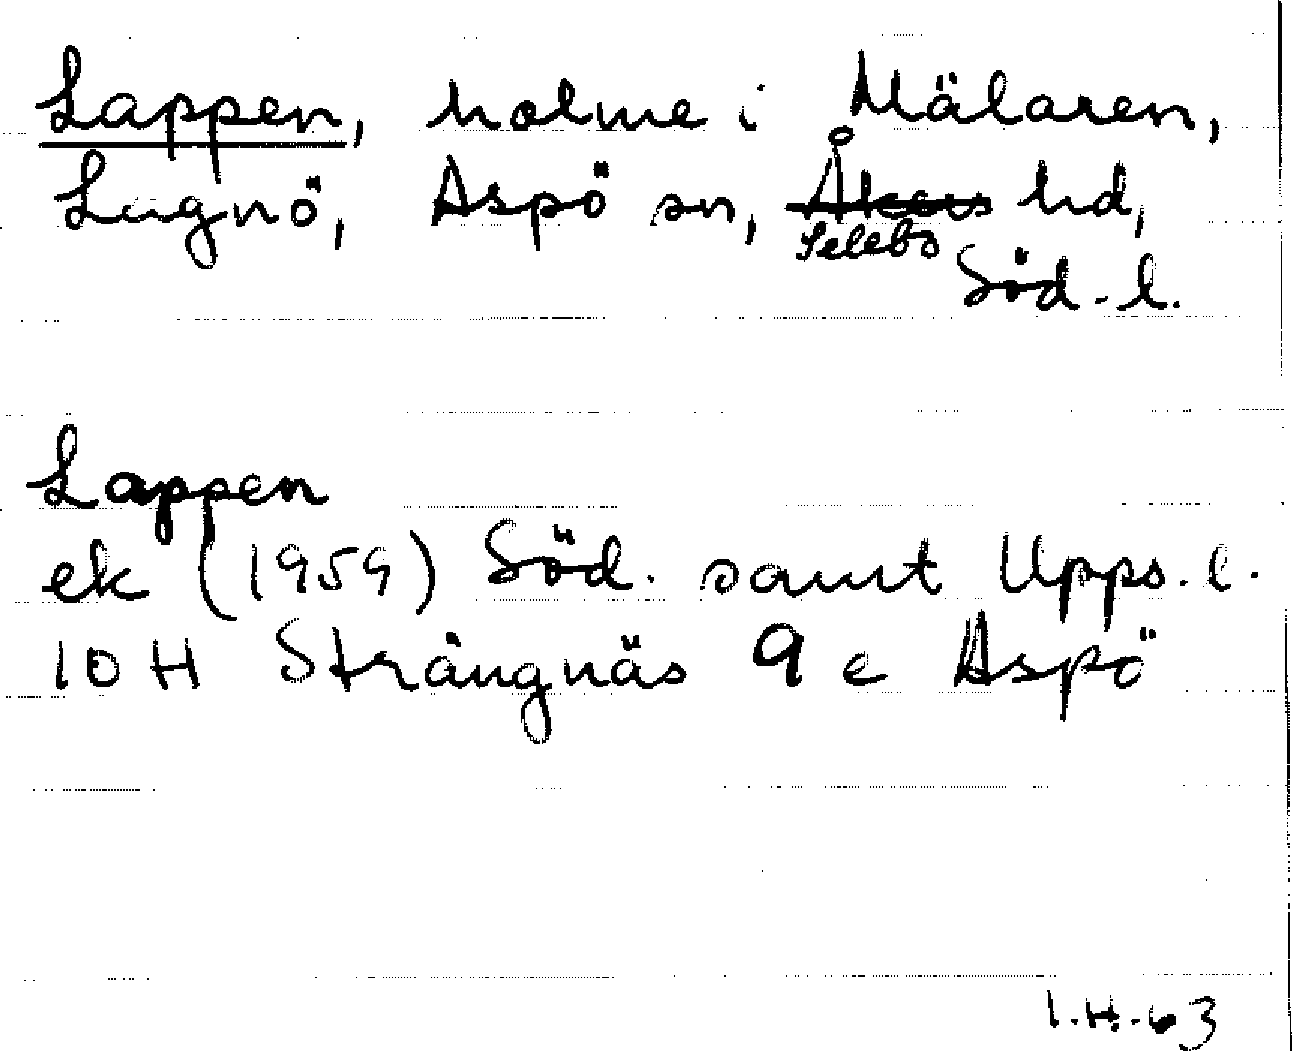 Lappen, holme i Mälaren,
Lagnö, Aspö sn, Åkers hd,
Selebo
Söd. l.
Lappen
ek (1959) Söd. samt Upps. l.
10 H Strängnäs 9 e Aspö
I.H.-63